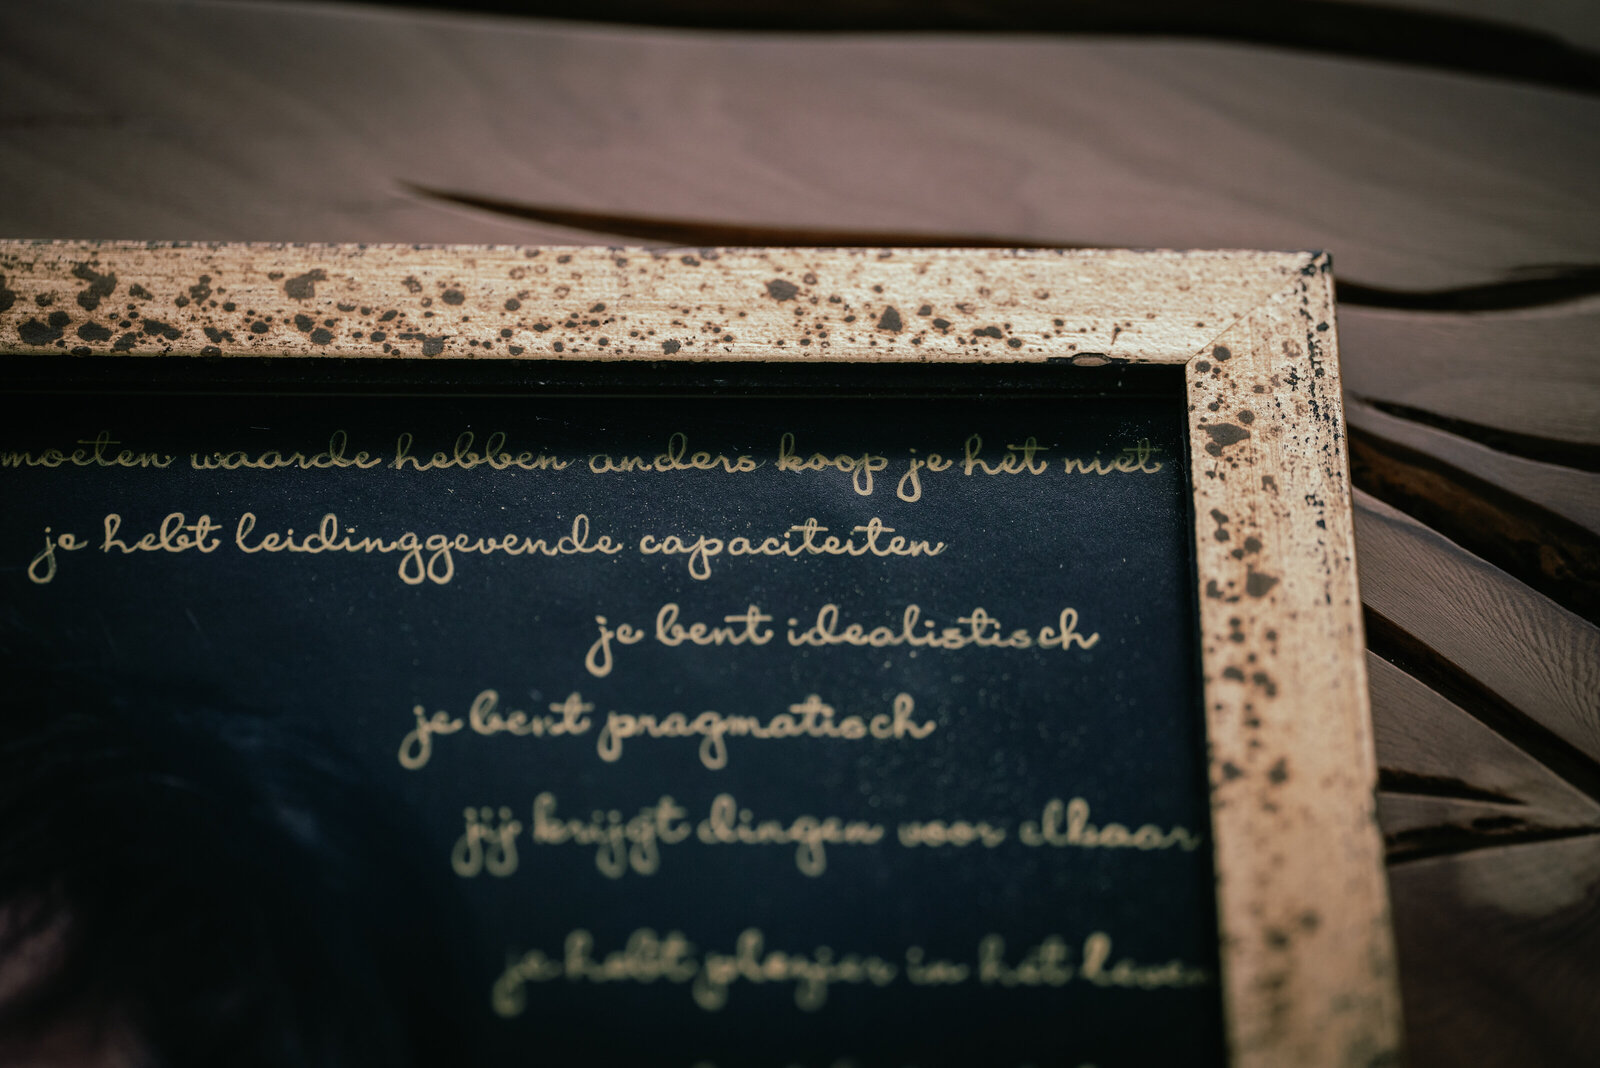 moeten waarde hebben anders koop je het niet
je hebt leidinggevende capaciteiten
je bent idealistisch
je bent pragmatisch
jij krijgt dingen voor elkaar
je hebt plezier in het leven